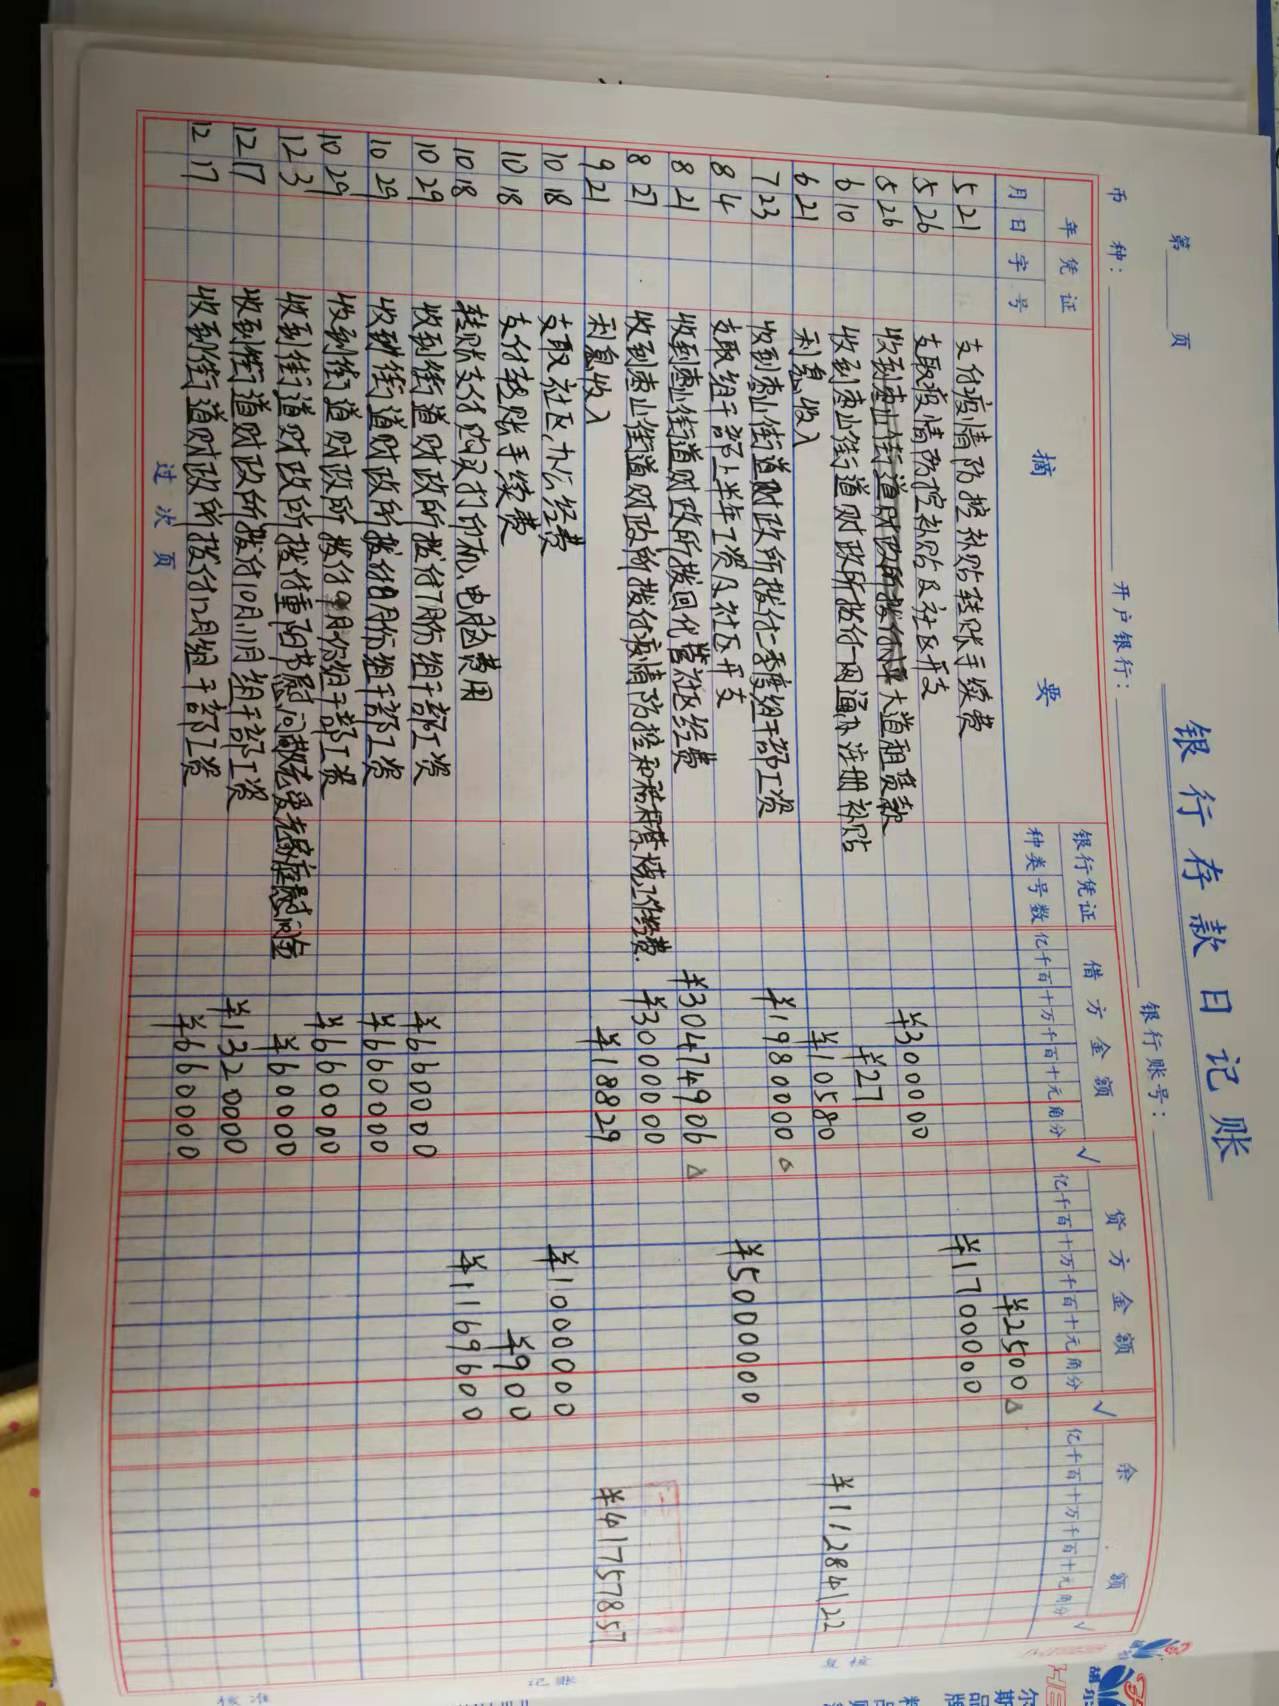 银行存款日记账
第 页
币 种： 开户银行： 银行账号：
年 凭证 摘 要 银行凭证 借方金额 √ 贷方金额 √ 余 额 √
月 日 字 号 种类 号数 亿千百十万千百十元角分 亿千百十万千百十元角分 亿千百十万千百十元角分
5 21 支付疫情防控补贴转账手续费 ¥2500
5 26 支取疫情防控补贴及社区开支 ¥1700000
5 26 大道租赁款 ¥300000
6 10 收到 街道财政所拨付一网通办注册补贴 ¥27
6 21 利息收入 ¥10580 ¥11284122
7 23 收到 街道财政所拨付一季度组干部工资 ¥1980000
8 4 支取组干部上半年工资及社区开支 ¥5000000
8 21 收到 街道财政所拨回代管社区经费 ¥30474906
8 27 收到 街道财政所拨付疫情防控和秸秆禁烧工作经费. ¥3000000
9 21 利息收入 ¥18829 ¥41757857
10 18 支取社区办公经费 ¥1000000
10 18 支付转账手续费 ¥900
10 18 转账支付购买打印机、电脑费用 ¥1169600
10 29 收到街道财政所拨付7月份组干部工资 ¥660000
10 29 收到街道财政所拨付8月份组干部工资 ¥660000
10 29 收到街道财政所拨付9月份组干部工资 ¥660000
12 3 收到街道财政所拨付重阳节慰问 慰问金 ¥60000
12 17 收到街道财政所拨付10月、11月组干部工资 ¥1320000
12 17 收到街道财政所拨付12月组干部工资 ¥660000
过次页
核准 记账 复核